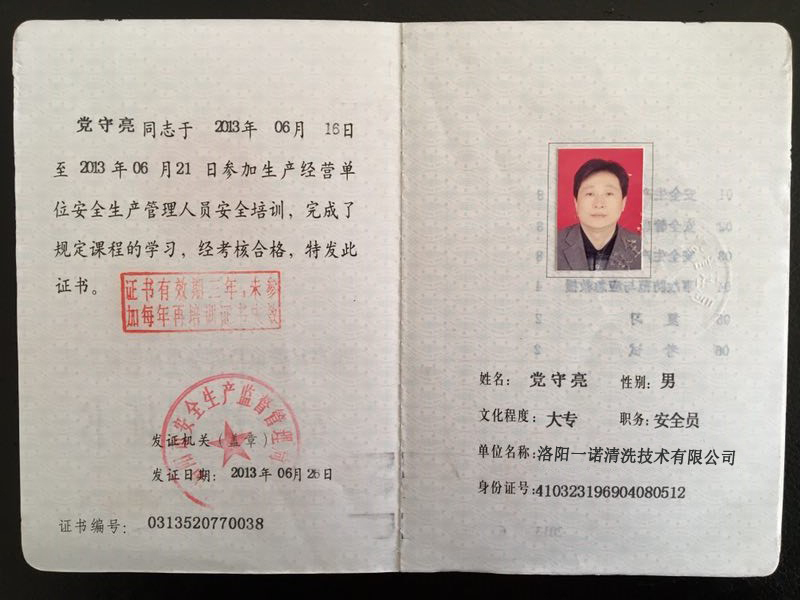 党守亮 同志于 2013年 06月 16日
至 2013年06 月21 日参加生产经营单
位安全生产管理人员安全培训，完成了
规定课程的学习，经考核合格，特发此
证书。
证书有效期三年，未参
加每年再培训证书失效
安全生产监督管理局
发证机关（盖章）
发证日期：2013年06月26日
证书编号：0313520770038
姓名：党守亮 性别：男
文化程度：大专 职务：安全员
单位名称：洛阳一诺清洗技术有限公司
身份证号：410323196904080512